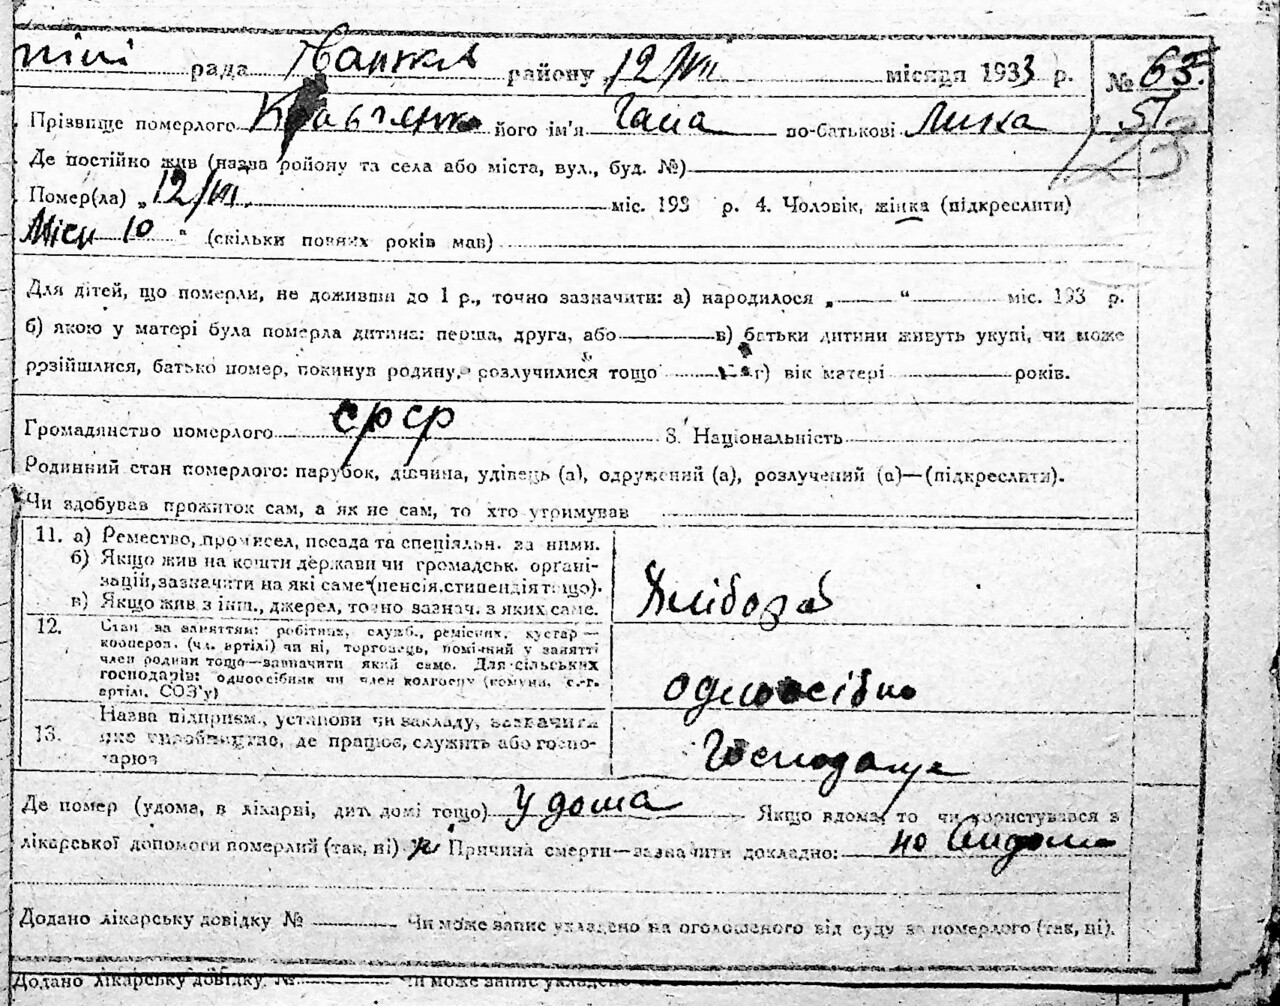 рада район у 12/VII місяця 1933 р. № 65
Прізвище померлого Кравченко його ім'я Гапа по-батькові Лика 51
Де постійно жив (назва району та села або міста, вул., буд. №) 123
Помер(ла) „12/VII. міс. 193 р. 4. Чоловік, жінка (підкреслити)
Міси 10 " (скільки повних років мав)
Для дітей, що померли, не доживши до 1 р., точно зазначити: а) народилося „ " міс. 193 р.
б) якою у матері була померла дитина: перша, друга, або в) батьки дитини живуть укупі, чи може
розійшлися, батько помер, покинув родину, розлучилися тощо г) вік матері років.
Громадянство померлого СРСР 8. Національність
Родинний стан померлого: парубок, дівчина, удівець (а), одружений (а), розлучений (а)—(підкреслити).
Чи здобував прожиток сам, а як не сам, то хто утримував
11. а) Ремество, промисел, посада та спеціяльн. за ними.
б) Якщо жив на кошти держави чи громадськ. органі-
зацій, зазначити на які саме (пенсія, стипендія тощо).
в) Якщо жив з інш., джерел, точно зазнач. з яких саме.
Хлібороб
12. Стан за заняттям: робітник, служб., ремісник, кустар—
кооперов. (чл. артілі) чи ні, торговець, помічний у занятті
член родини тощо—зазначити який саме. Для сільських
господарів: одноосібник чи член колгоспу (комуна, с.-г.
артілі, СОЗ'у)
одноосібно
13. Назва підприєм., установи чи закладу, зазначити
яке виробництво, де працює, служить або госпо-
дарює
Господарує
Де помер (удома, в лікарні, дит. домі тощо) у дома Якщо вдома, то чи користувався з
лікарської допомоги померлий (так, ні) ні Причина смерти—зазначити докладно:
Додано лікарську довідку № Чи може запис укладено на оголошеного від суду за померлого (так, ні).
Додано лікарську довідку № Чи може запис укладено на